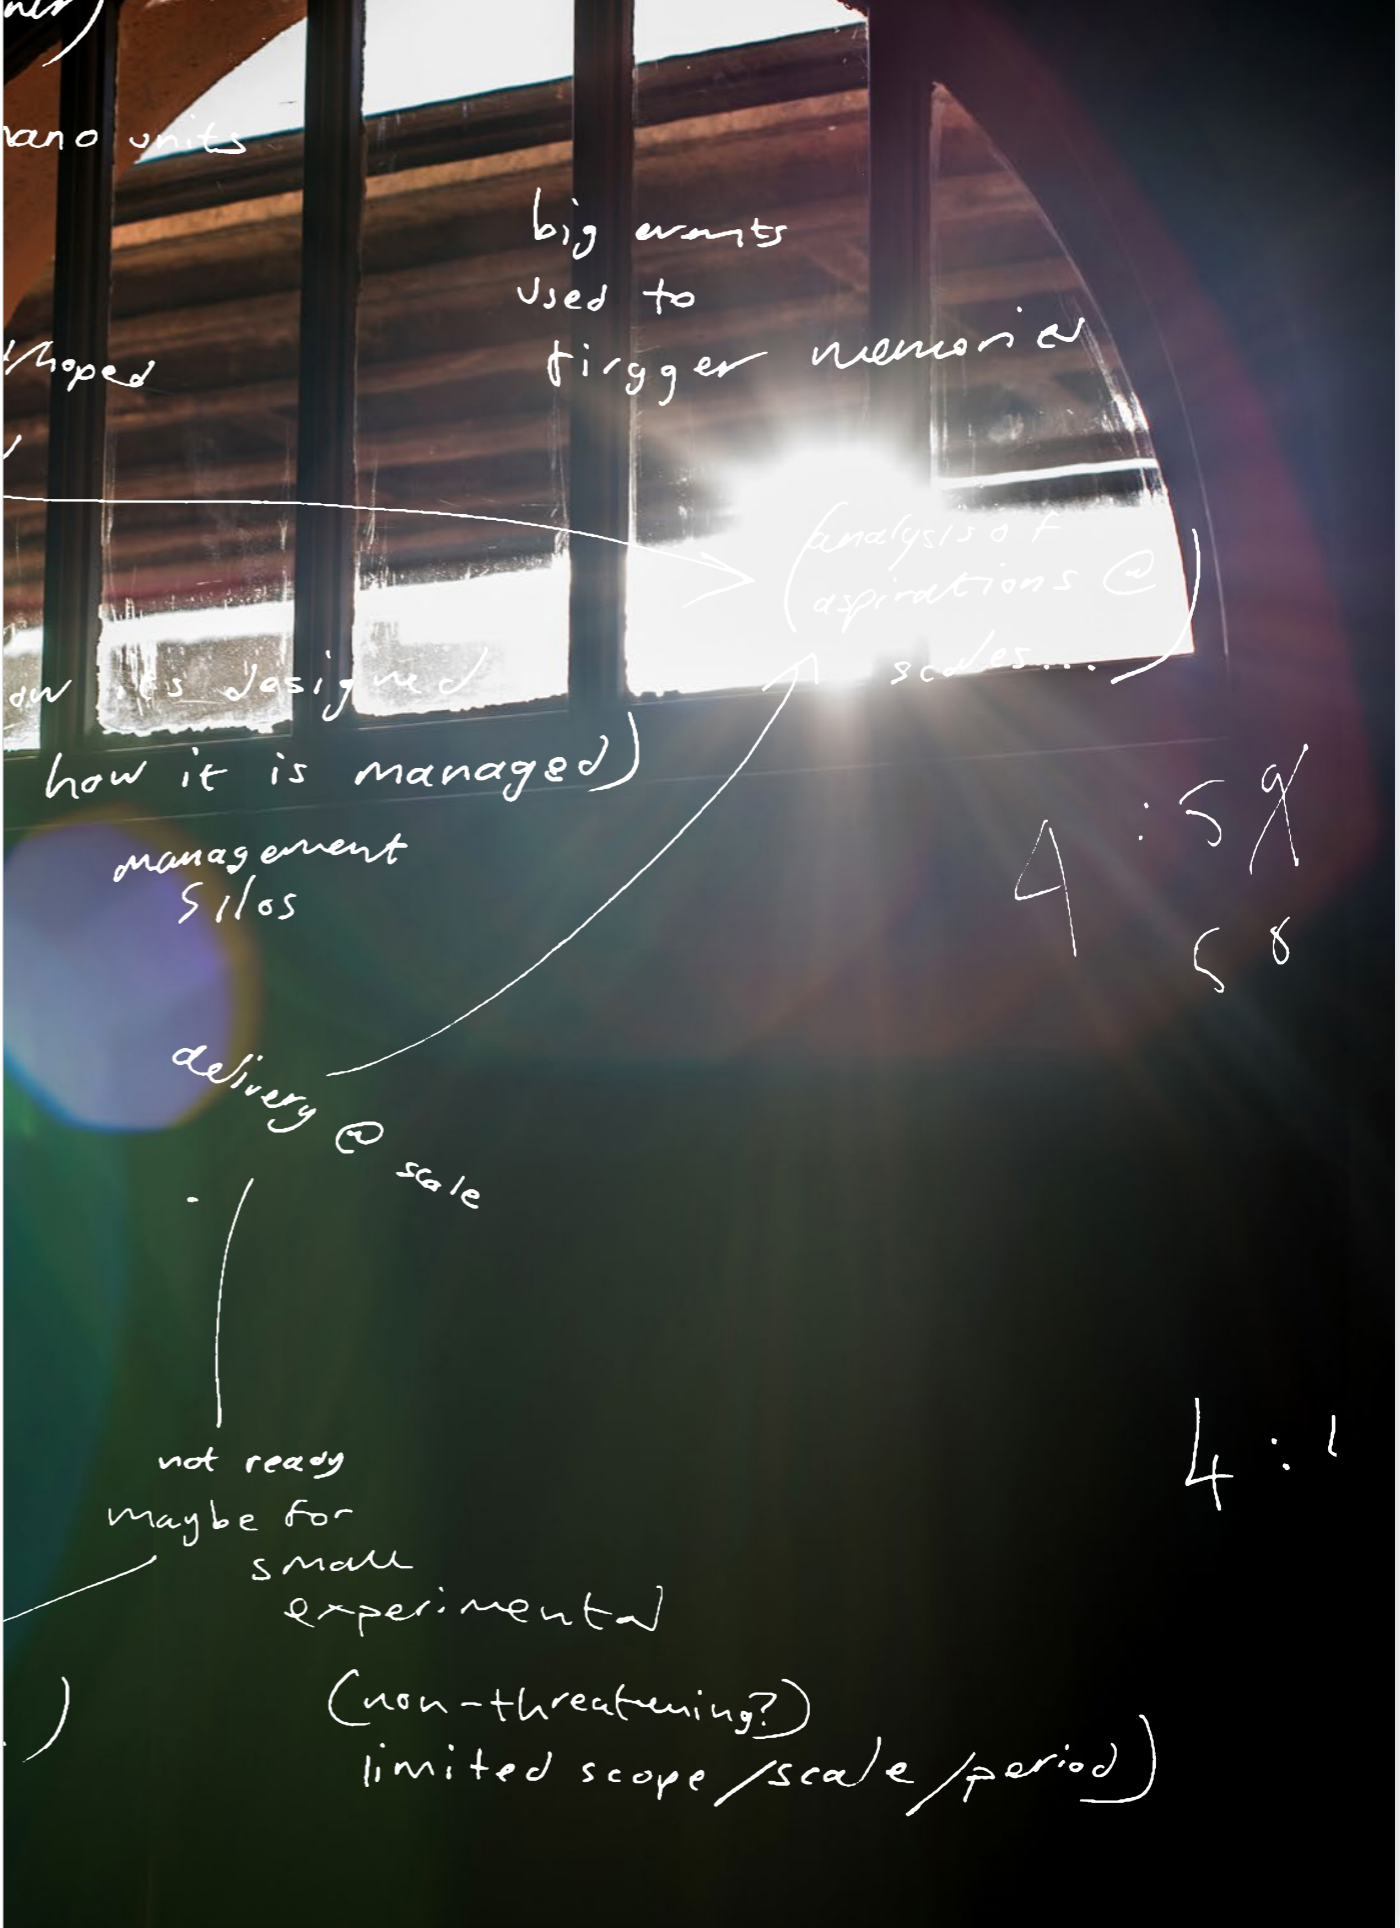 units
big events
used to
tirgger memories
(analysis of
aspirations @
scales...)
designed
how it is managed)
management
silos
4 : 59
58
delivery @ scale
4 : 1
not ready
maybe for
small
experimental
(non-threatening?)
limited scope/scale/period)